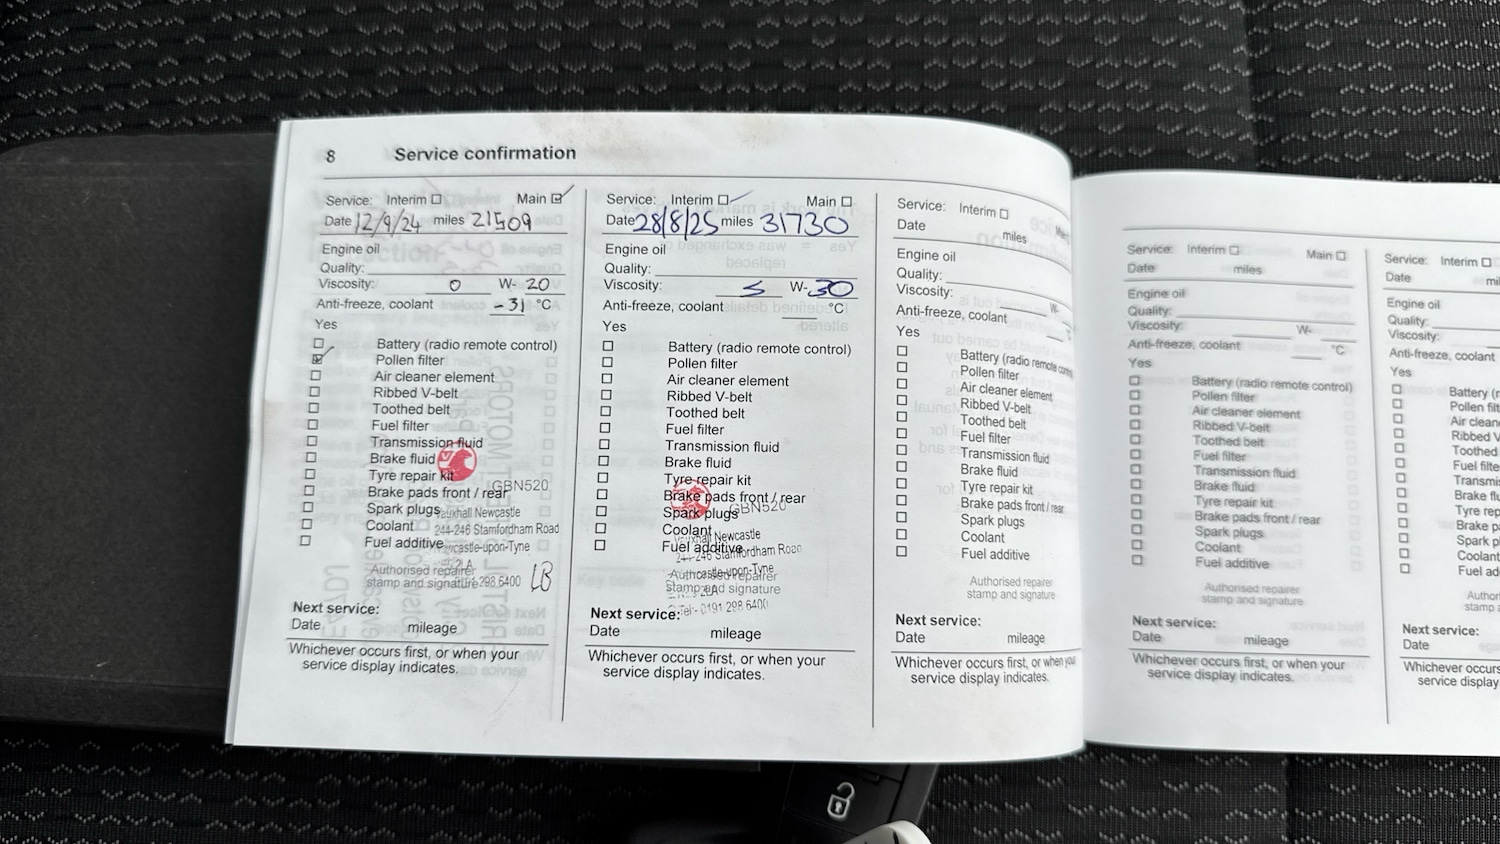 8 Service confirmation
Service: Interim Main
Date 12/9/24 miles 21509
Engine oil
Quality:
Viscosity: 0 W- 20
Anti-freeze, coolant -31 °C
Yes
Battery (radio remote control)
Pollen filter
Air cleaner element
Ribbed V-belt
Toothed belt
Fuel filter
Transmission fluid
Brake fluid
Tyre repair kit
Brake pads front / rear
Spark plugs
Coolant
Fuel additive
GBN520
Vauxhall Newcastle
244-246 Stamfordham Road
Newcastle-upon-Tyne
Authorised repairer
stamp and signature
298 6400
LB
Next service:
Date mileage
Whichever occurs first, or when your
service display indicates.
Service: Interim Main
Date 28/8/25 miles 31730
Engine oil
Quality:
Viscosity: 5 W- 30
Anti-freeze, coolant °C
Yes
Battery (radio remote control)
Pollen filter
Air cleaner element
Ribbed V-belt
Toothed belt
Fuel filter
Transmission fluid
Brake fluid
Tyre repair kit
Brake pads front / rear
Spark plugs
Coolant
Fuel additive
GBN520
Vauxhall Newcastle
244-246 Stamfordham Road
Newcastle-upon-Tyne
Authorised repairer
stamp and signature
Tel: 0191 298 6400
Next service:
Date mileage
Whichever occurs first, or when your
service display indicates.
Service: Interim Main
Date miles
Engine oil
Quality:
Viscosity: W-
Anti-freeze, coolant
Yes
Battery (radio remote
Pollen filter
Air cleaner element
Ribbed V-belt
Toothed belt
Fuel filter
Transmission fluid
Brake fluid
Tyre repair kit
Brake pads front / rear
Spark plugs
Coolant
Fuel additive
Authorised repairer
stamp and signature
Next service:
Date mileage
Whichever occurs first, or when your
service display indicates.
Service: Interim Main
Date miles
Engine oil
Quality:
Viscosity: W-
Anti-freeze, coolant °C
Yes
Battery (radio remote control)
Pollen filter
Air cleaner element
Ribbed V-belt
Toothed belt
Fuel filter
Transmission fluid
Brake fluid
Tyre repair kit
Brake pads front / rear
Spark plugs
Coolant
Fuel additive
Authorised repairer
stamp and signature
Next service:
Date mileage
Whichever occurs first, or when your
service display indicates.
Service: Interim
Date mil
Engine oil
Quality:
Viscosity:
Anti-freeze, coolant
Yes
Battery (r
Pollen filt
Air clean
Ribbed V
Toothed
Fuel filte
Transmis
Brake flu
Tyre rep
Brake p
Spark p
Coolant
Fuel ad
Author
stamp a
Next service:
Date
Whichever occurs
service display